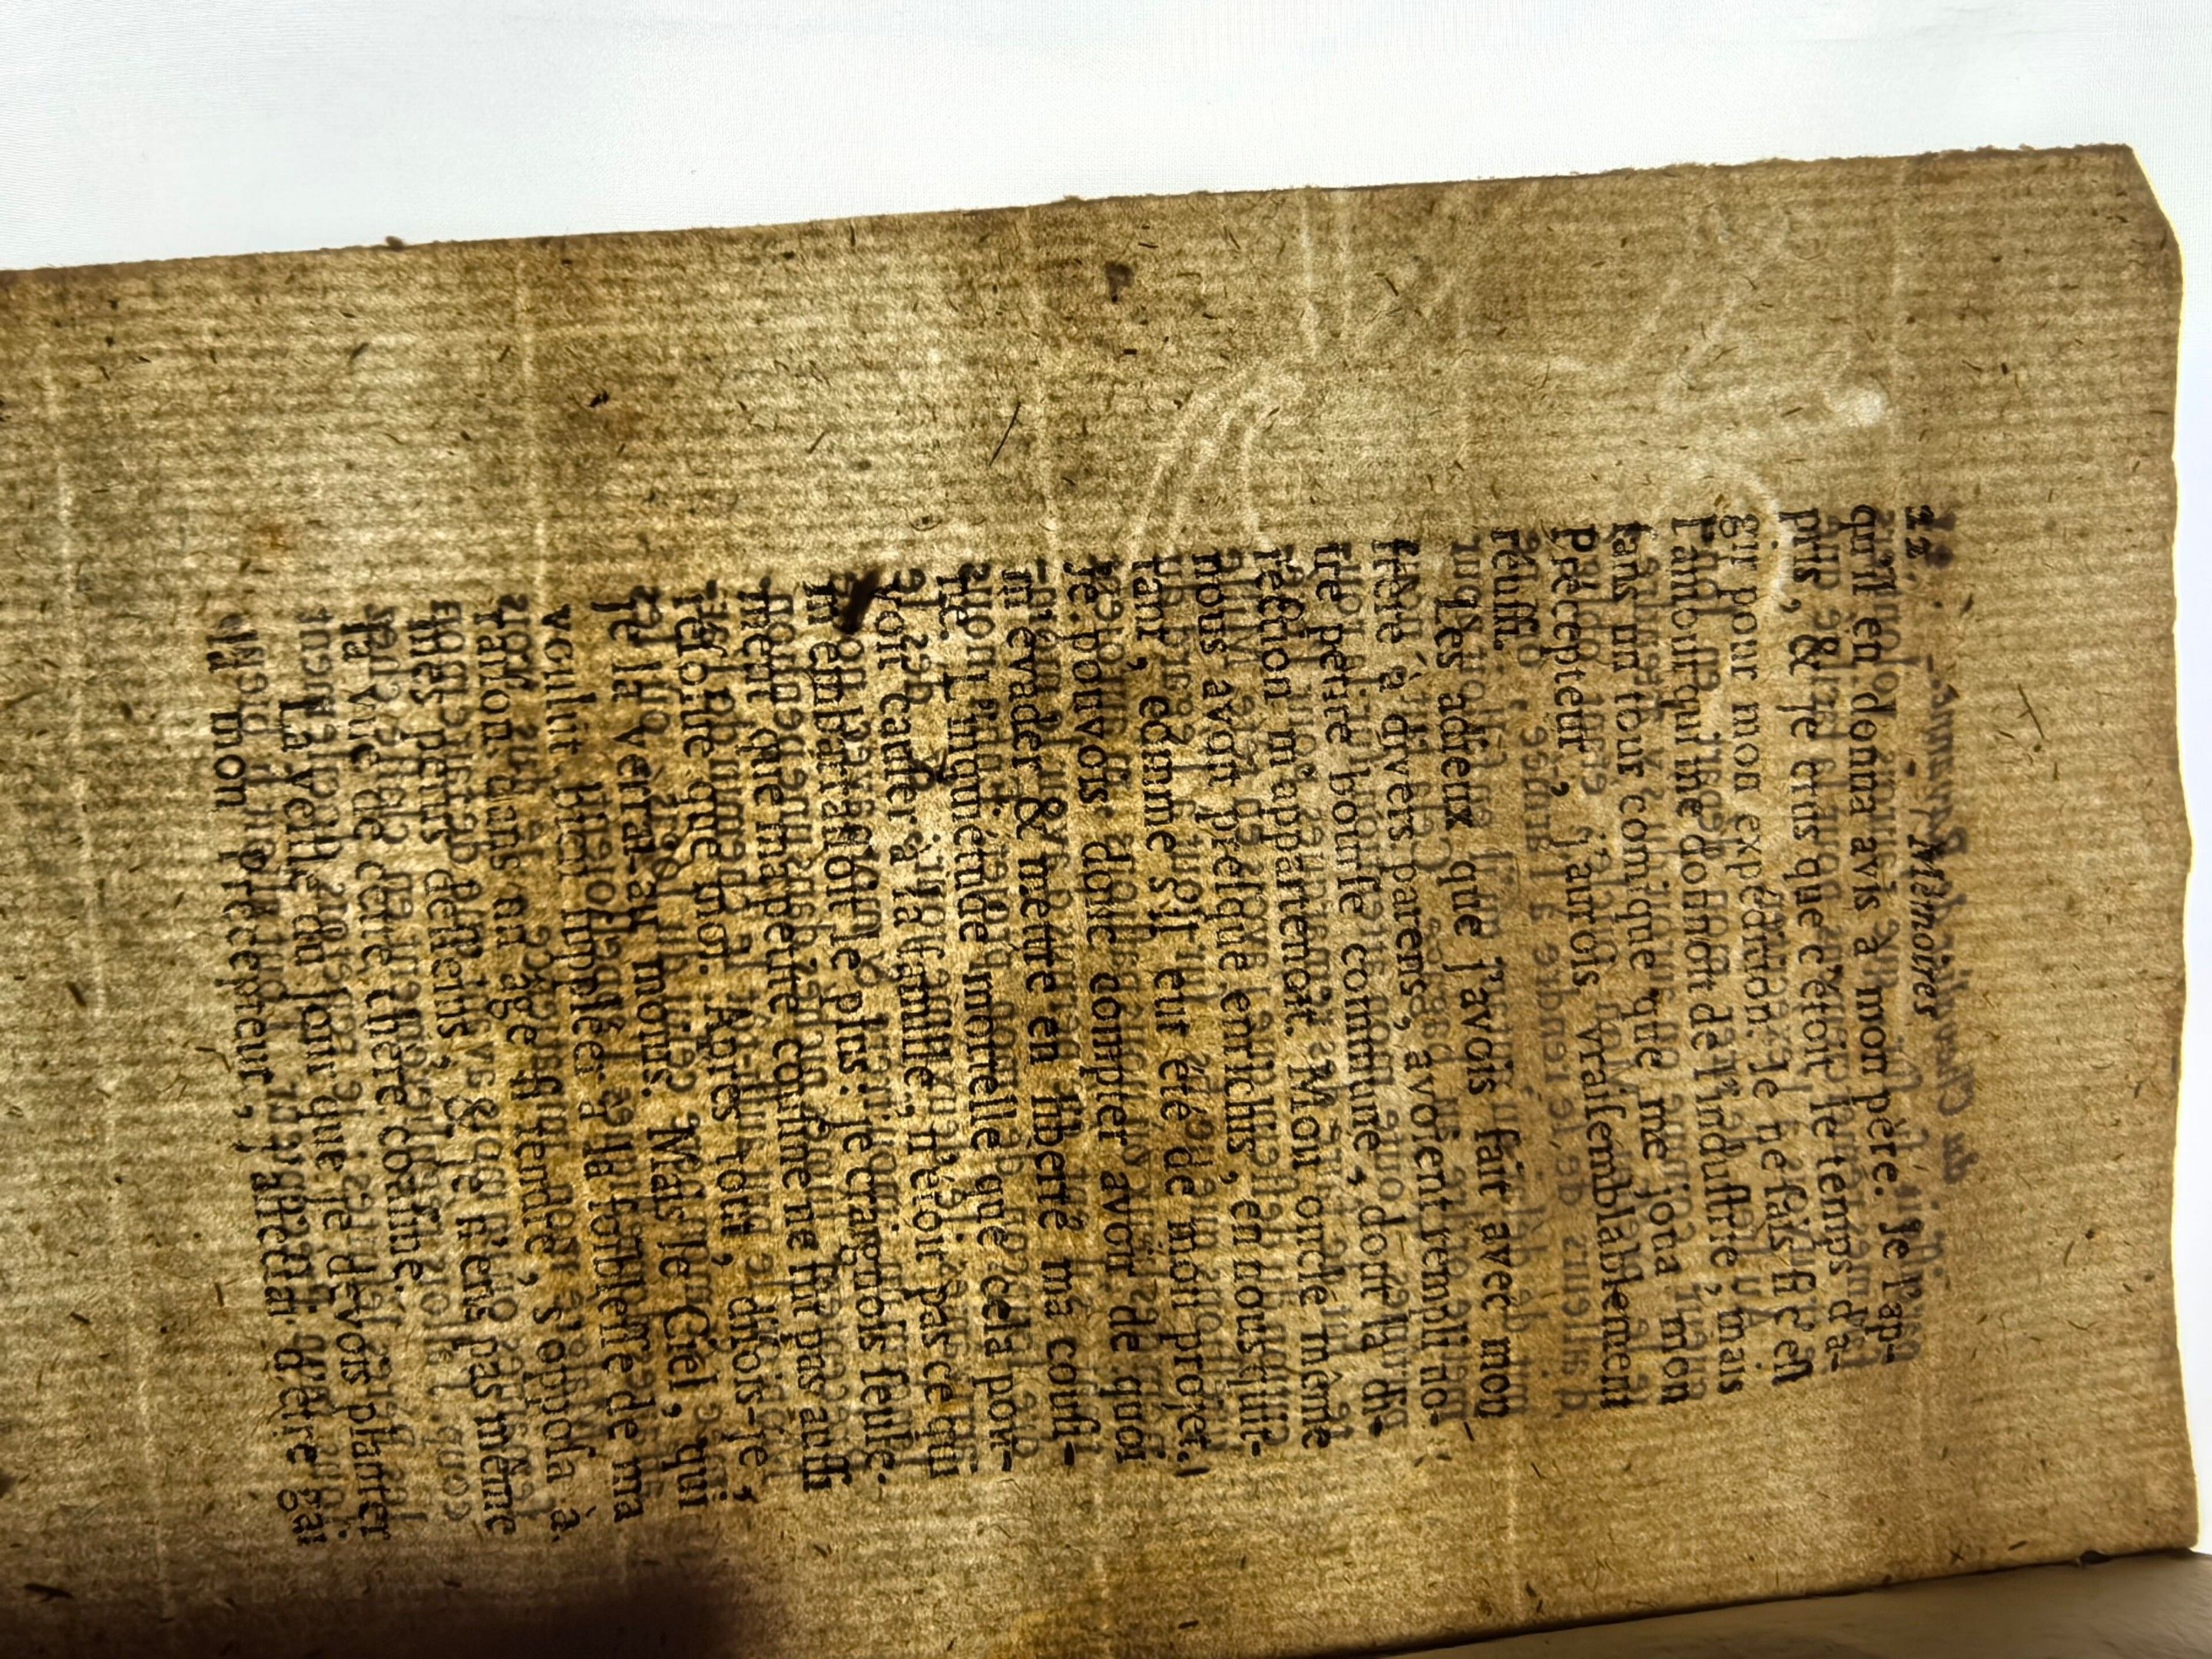 12 Mémoires
qu'il en donna avis à mon pere. Je l'ap-
pris, & je crus que c'étoit le temps d'a-
gir pour mon expédition. Je ne ſais ſi c'eſt
l'amour qui me donnoit de l'induſtrie, mais
ſans un tour comique que me joua mon
Précepteur, j'aurois vraiſemblablement
réuſſi.
Les adieux que j'avois fait avec mon
frere à divers parens, avoient rempli no-
tre petite bourſe commune, dont la di-
rection m'appartenoit. Mon oncle même
nous avoit preſque enrichis, en nous quit-
tant, comme s'il eût été de mon projet.
Je pouvois donc compter avoir de quoi
m'évader & mettre en liberté ma couſi-
ne. L'inquiétude mortelle que cela pou-
voit cauſer à la famille, n'étoit pas ce qui
m'embarraſſoit le plus: je craignois ſeule-
ment que ma petite couſine ne fût pas auſſi
réſolue que moi. Après tout, diſois-je,
je la verrai au moins. Mais le Ciel, qui
vouloit bien ſuppléer à la foibleſſe de ma
raiſon dans un âge ſi tendre, s'oppoſa à
mes petits deſſeins, & je n'eus pas même
la vue de cette chere couſine.
La veille du jour que je devois planter
là mon précepteur, j'affectai d'être gai